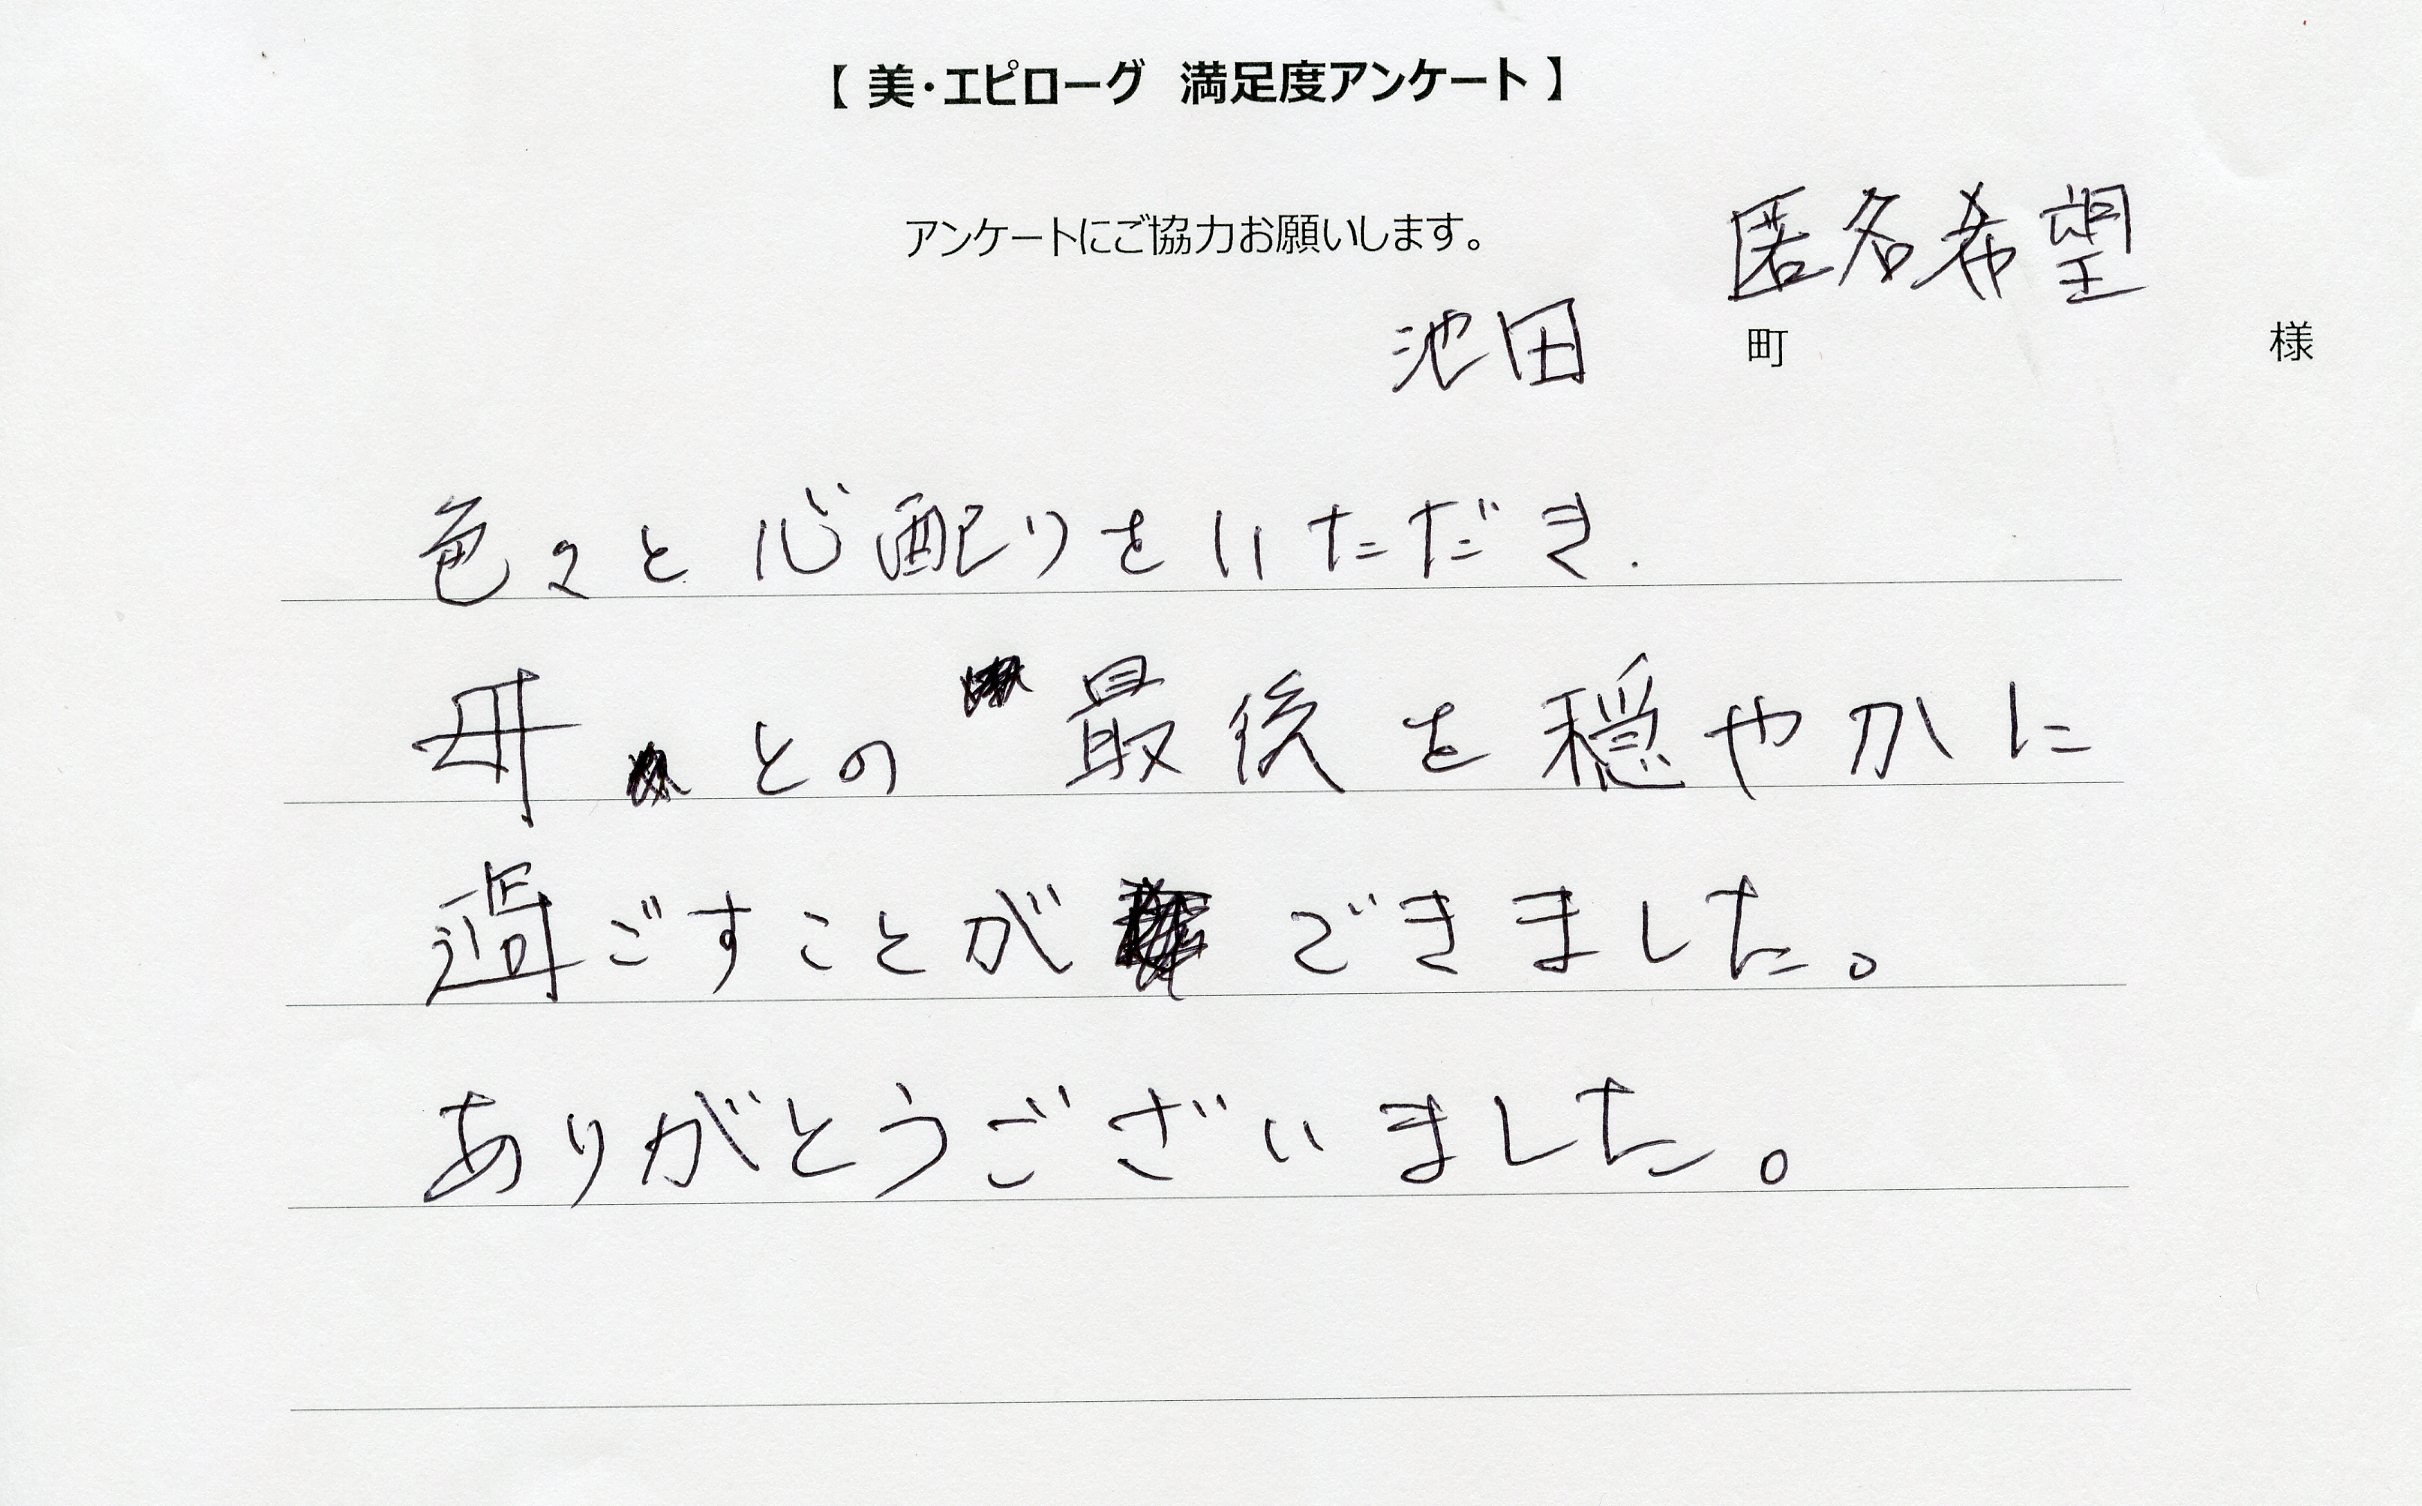 【 美・エピローグ 満足度アンケート 】
アンケートにご協力お願いします。
匿名希望
池田 町 様
色々と心配りをいただき.
母との最後を穏やかに
過ごすことができました。
ありがとうございました。